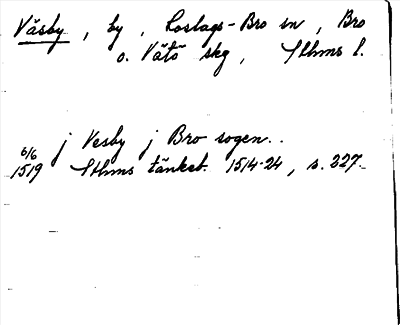 Väsby, by, Roslags-Bro sn, Bro
o. Vätö skg, Sthms l.
j Vesby j Bro sogen..
6/6
1519 Sthms tänkeb. 1514-24, s. 227.